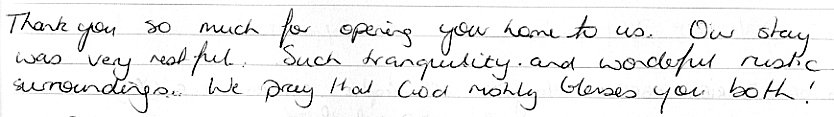 Thank you so much for opening your home to us. Our stay
was very restful. Such tranquility. and wonderful rustic
surroundings. We pray that God richly blesses you both!